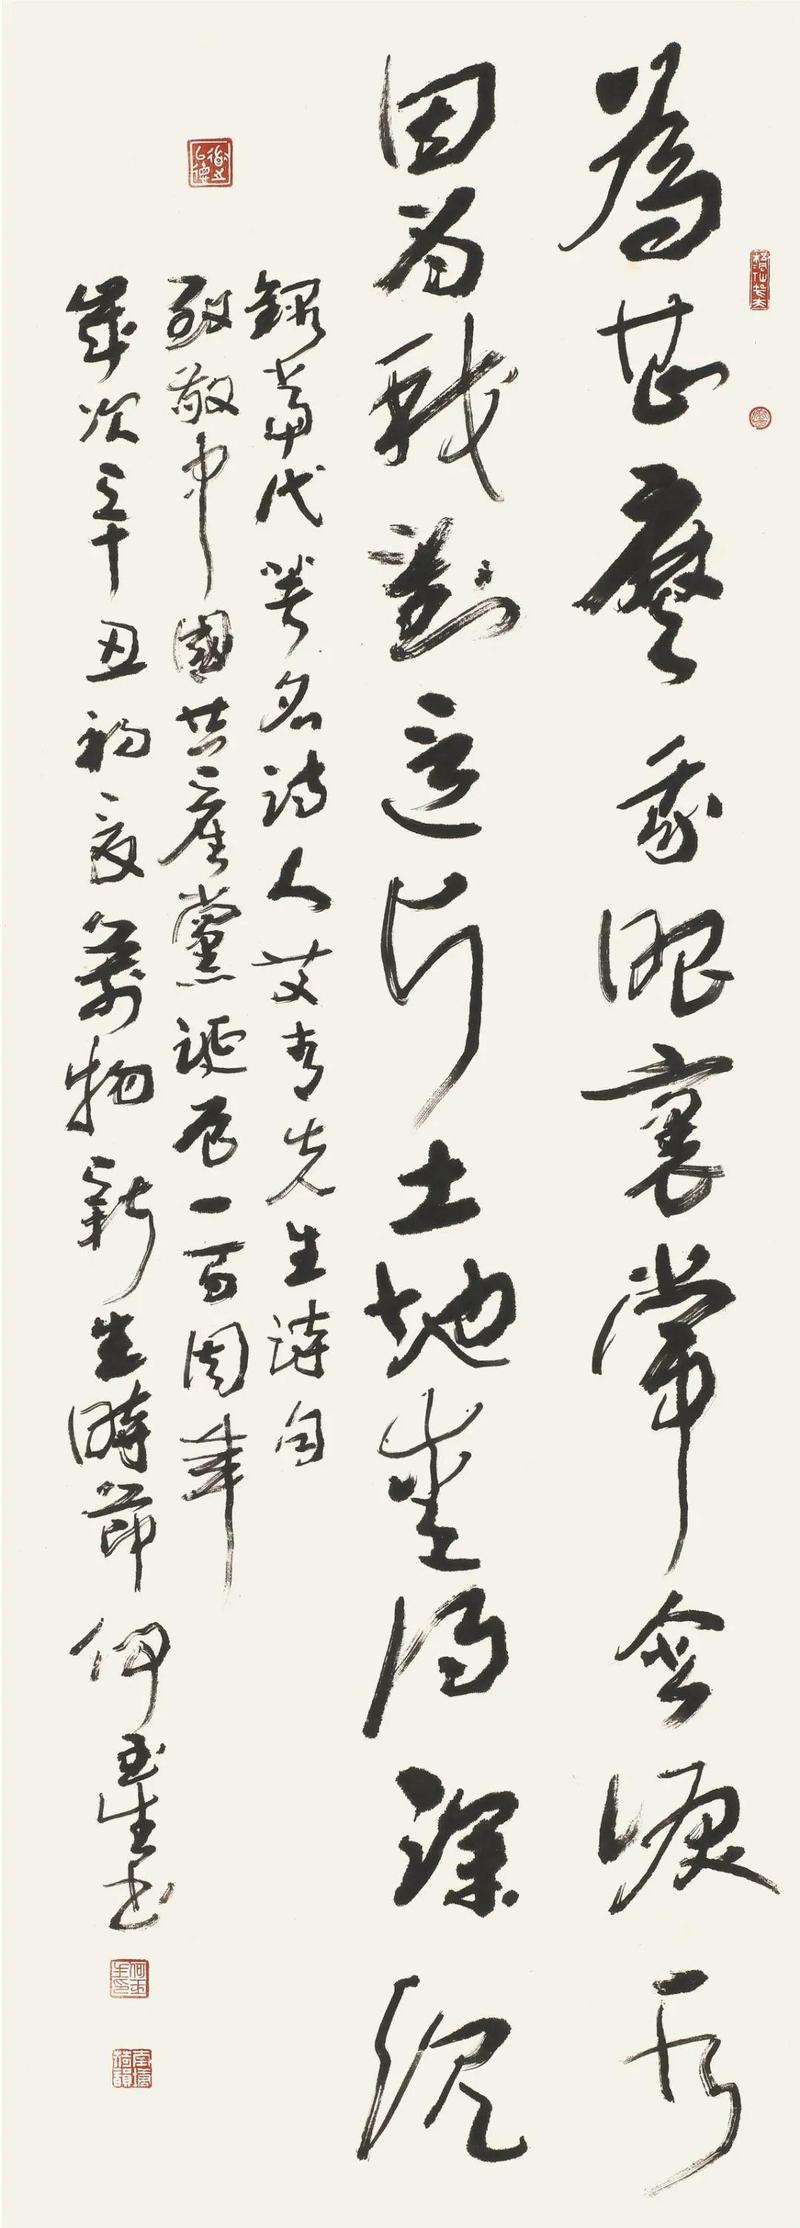 為甚麼我眼裏常含淚水
因為我對這片土地愛得深沉
錄當代著名詩人艾青先生詩句
致敬中國共產黨誕辰一百周年
歲次辛丑初夏萬物新生時節何玉生書
何玉生印